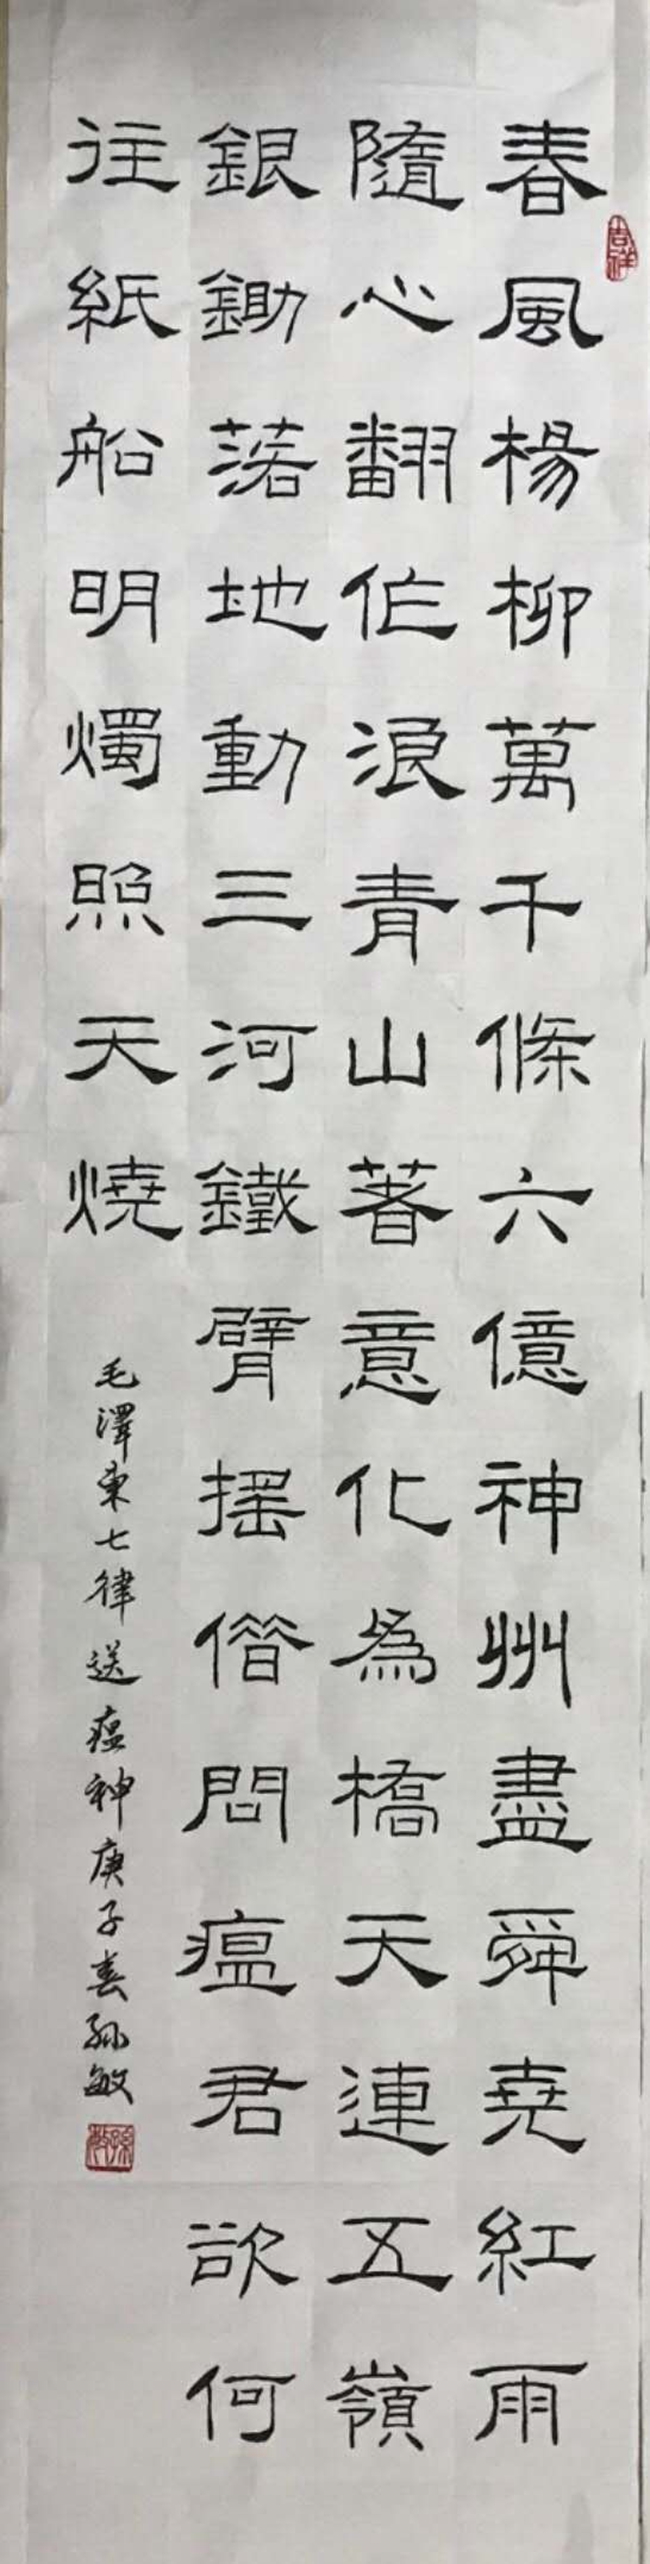 春風楊柳萬千條六億神州盡舜堯紅雨
隨心翻作浪青山著意化為橋天連五嶺
銀鋤落地動三河鐵臂搖借問瘟君欲何
往紙船明燭照天燒
毛澤東七律送瘟神庚子春孫敏
吉祥
孫敏